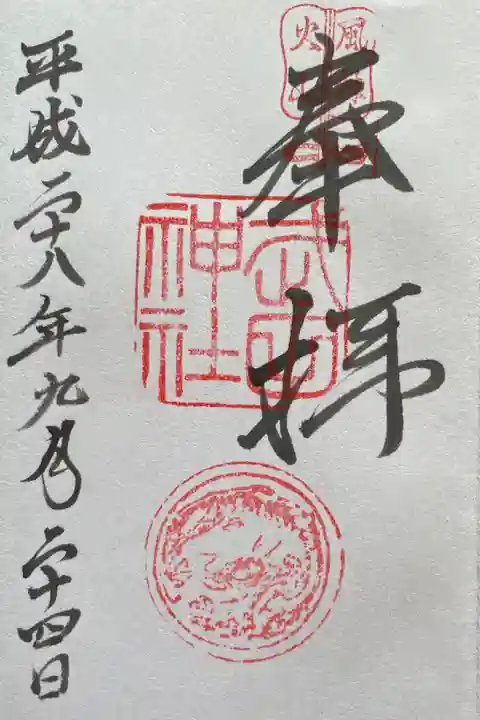 風
火
奉拝
武田
神社
平成二十八年九月二十四日